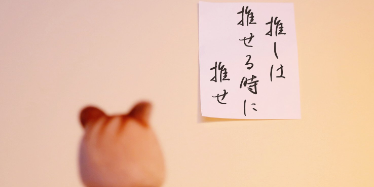 推しは
推せる時に
推せ